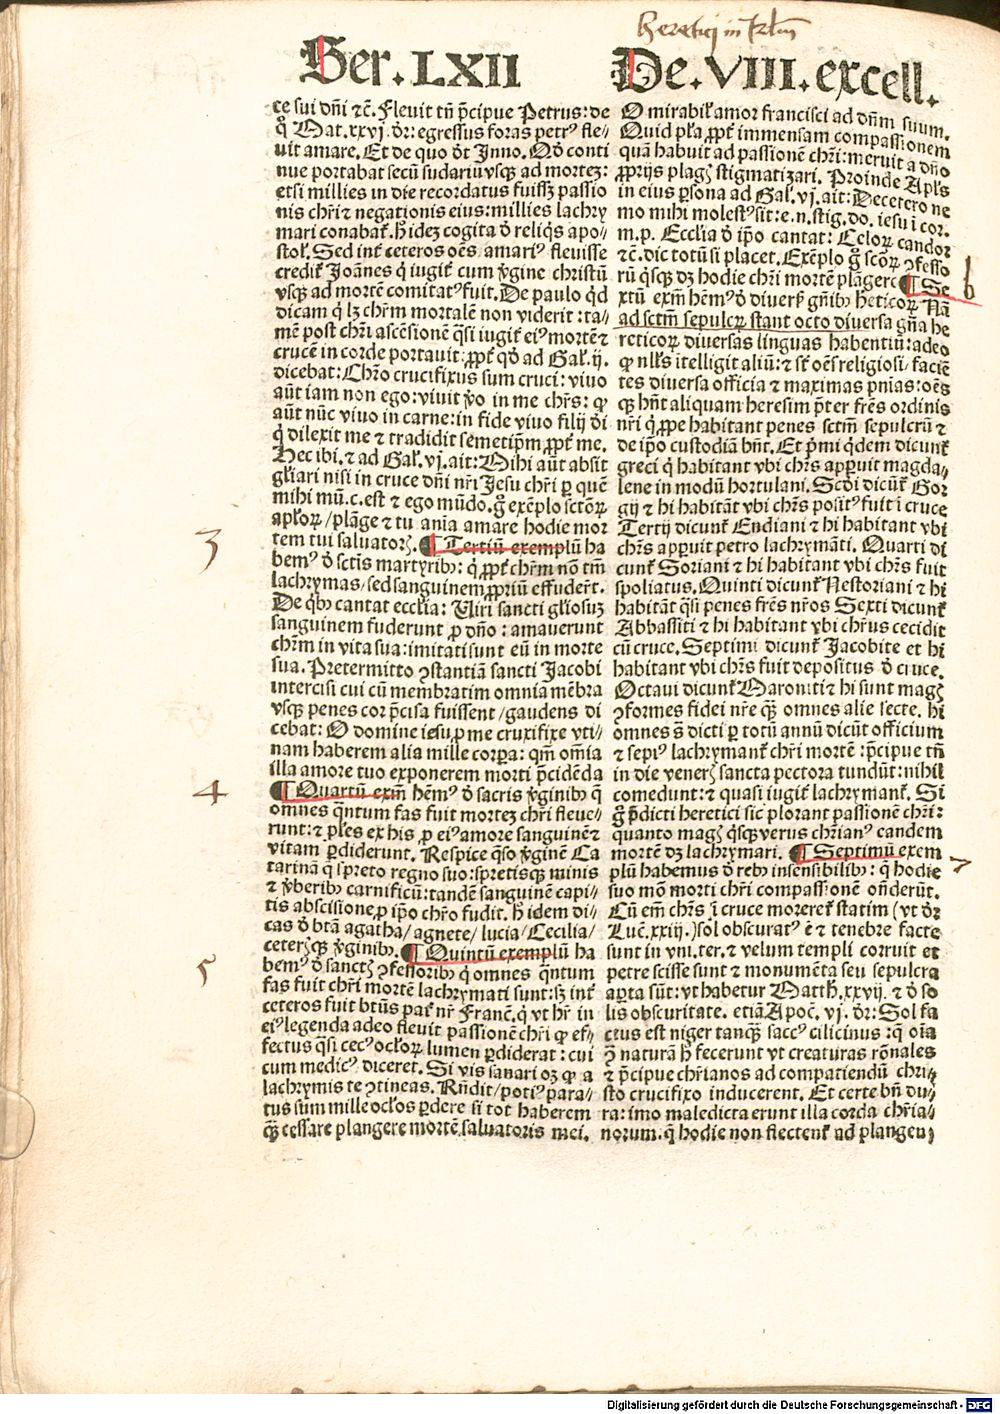 Heretici in Jrlm
Ser. LXII
De. VIII. excell.
ce sui dñi ⁊c̃. Fleuit tñ p̃cipue Petrus: de
q̊ Mat. xxvj. dr̃: egressus foras petrꝰ fle⸗
uit amare. Et de quo dt̃ Inno. Qd̓ conti
nue portabat secũ sudariũ vsqꝫ ad mortez:
etsi millies in die recordatus fuissꝫ passio
nis chr̃i ⁊ negationis eius: millies lachry
mari conabat᷑. h̃ idez cogita d̓ reliq̃s apo⸗
stol᷑. Sed int̓ ceteros oẽs amariꝰ fleuisse
credit᷑ Joãnes q̇ iugit̓ cum v̓gine christũ
vsqꝫ ad mortẽ comitatꝰ fuit. De paulo q̇d
dicam q̇ lꝫ chr̃m mortalẽ non viderit: ta⸗
mẽ post chr̃i ascẽsionẽ q̃si iugit̓ eiꝰ mortẽ ⁊
crucẽ in corde portauit: ꝓpt̓ qd̓ ad Gal᷑. ij.
dicebat: Chr̃o crucifixus sum cruci: viuo
aũt iam non ego: viuit v̓o in me chr̃s: ꝙ
aũt nũc viuo in carne: in fide viuo filij di
q̇ dilexit me ⁊ tradidit semetip̃m ꝓpt̓ me.
Hec ibi. ⁊ ad Gal᷑. vj. ait: Mihi aũt absit
gl̃iari nisi in cruce dñi nr̃i Jesu chr̃i ꝑ quẽ
mihi mũ. c. est ⁊ ego mũdo. g̊ exẽplo sctõꝝ
apl̃oꝝ / plãge ⁊ tu aĩa amare hodie mor
tem tui saluatorꝭ. ¶ Tertiũ exemplũ ha
bemꝰ d̓ sctĩs martyribꝰ: q̇ ꝓpt̓ chr̃m nõ tm̃
lachrymas / sed sanguinem ꝓpriũ effuder̃t.
De qbꝰ cantat eccl̃ia: Uiri sancti gl̃iosuꝫ
sanguinem fuderunt ꝓ dño: amauerunt
chr̃m in vita sua: imitati sunt eũ in morte
sua. Pretermitto ꝯstantiã sancti Jacobi
intercisi cui cũ membratim omnia mẽbra
vsqꝫ penes cor p̃cisa fuissent / gaudens di
cebat: O domine iesu, ꝓ me cruxifixe vti⸗
nam haberem alia mille corꝑa: qm̃ om̃ia
illa amore tuo exponerem morti p̃cidẽda
¶ Quartũ exm̃ hẽmꝰ d̓ sacris v̓ginibꝰ q̃
omnes q̃ntum fas fuit mortez chr̃i fleue⸗
runt: ⁊ pl̃es ex his ꝓ eiꝰ amore sanguinẽ ⁊
vitam ꝑdiderunt. Respice q̃so v̓ginẽ Ca
tarinã q̃ spreto regno suo: spretisqꝫ minis
⁊ v̓beribꝰ carnificũ: tandẽ sanguinẽ capi⸗
tis abscisione, ꝓ ip̃o chr̃o fudit. h̃ idem di⸗
cas d̓ btã agatha / agnete / lucia / Cecilia /
ceterꝭqꝫ v̓ginibꝰ. ¶ Quintũ exemplũ ha
bemꝰ d̓ sanctꝭ ꝯfessoribꝰ q̇ omnes q̃ntum
fas fuit chr̃i mortẽ lachrymati sunt: sꝫ int̓
ceteros fuit bt̃us pat̓ nr̃ Francꝰ. q̇ vt hr̃ in
eiꝰ legenda adeo fleuit passionẽ chr̃i ꝙ ef⸗
fectus q̃si cecꝰ ocl̃oꝝ lumen ꝑdiderat: cui
cum medicꝰ diceret. Si vis sanari oꝫ ꝙ a
lachrymis te ꝯtineas. Rñdit / potiꝰ para⸗
tus sum mille ocl̃os ꝑdere si tot haberem
q̃ꝫ cessare plangere mortẽ saluatoris mei.
O mirabil᷑ amor francisci ad dñm suum.
Quid pl̃a, ꝓpt̓ immensam compassionem
quã habuit ad passionẽ chr̃i: meruit a dño
ꝓprijs plagꝭ stigmatizari. Proinde Apl̃s
in eius ꝑsona ad Gal᷑. vj. ait: De cetero ne
mo mihi molestꝰ sit: e. n. stig. do. iesu ĩ cor.
m. p. Eccl̃ia d̓ ip̃o cantat: Celoꝝ candor
⁊c̃. dic totũ si placet. Exẽplo g̊ sctõꝝ ꝯfesso
rũ q̇sqꝫ dꝫ hodie chr̃i mortẽ plãgere ¶ Se
xtũ exm̃ hẽmꝰ d̓ diuersꝭ gñibꝰ heticoꝝ Nã
ad sctm̃ sepulcꝝ stant octo diuersa gña he
reticoꝝ diuersas linguas habentiũ: adeo
ꝙ nll̃s ĩtelligit aliũ: ⁊ st̃ oẽs religiosi / faciẽ
tes diuersa officia ⁊ maximas pnĩas: oẽs
qꝫ hñt aliquam heresim p̃ter fr̃es ordinis
nr̃i q̇ ꝓpe habitant penes sctm̃ sepulcrũ ⁊
de ip̃o custodiã hñt. Et p̃mi q̇dem dicunt᷑
greci q̇ habitant vbi chr̃s apꝑuit magda⸗
lene in modũ hortulani. Scd̓i dicũt᷑ Gor
gij ⁊ hi habitãt vbi chr̃s positꝰ fuit ĩ cruce
Tertij dicunt᷑ Endiani ⁊ hi habitant vbi
chr̃s apꝑuit petro lachrymãti. Quarti di
cunt᷑ Soriani ⁊ hi habitant vbi chr̃s fuit
spoliatus. Quinti dicunt᷑ Nestoriani ⁊ hi
habitãt q̃si penes fr̃es nr̃os Sexti dicunt᷑
Abbassiti ⁊ hi habitant vbi chr̃us cecidit
cũ cruce. Septimi dicunt᷑ Jacobite et hi
habitant vbi chr̃s fuit depositus d̓ cruce.
Octaui dicunt᷑ Maroniti ⁊ hi sunt magꝭ
ꝯformes fidei nr̃e q̃ꝫ omnes alie secte. hi
omnes s̃ dicti ꝑ totũ annũ dicũt officium
⁊ sepiꝰ lachrymant᷑ chr̃i mortẽ: p̃cipue tñ
in die venerꝭ sancta pectora tundũt: nihil
comedunt: ⁊ quasi iugit̓ lachrymant᷑. Si
g̊ p̃dicti heretici sic plorant passionẽ chr̃i:
quanto magꝭ q̇sqꝫ verus chr̃ianꝰ eandem
mortẽ dꝫ lachrymari. ¶ Septimũ exem
plũ habemus d̓ rebꝰ insensibilibꝰ: q̃ hodie
suo mõ morti chr̃i compassionẽ oñderũt.
Cũ em̃ chr̃s ĩ cruce moreret᷑ statim (vt dr̃
Luc̃. xxiij.) sol obscuratꝰ ẽ ⁊ tenebre facte
sunt in vni. ter. ⁊ velum templi corruit et
petre scisse sunt ⁊ monumẽta seu sepulcra
aꝑta sũt: vt habetur Matth̃. xxvij. ⁊ d̓ so
lis obscuritate. etiã Apoc̃. vj. dr̃: Sol fa
ctus est niger tanq̃ꝫ saccꝰ cilicinus: q̃ oĩa
ꝯ̃ naturã h̃ fecerunt vt creaturas rõnales
⁊ p̃cipue chr̃ianos ad compatiendũ chri⸗
sto crucifixo inducerent. Et certe bñ du⸗
ra: imo maledicta erunt illa corda chr̃ia⸗
norum. q̃ hodie non flectent᷑ ad plangen⸗
3
4
5
6
7
Digitalisierung gefördert durch die Deutsche Forschungsgemeinschaft - DFG